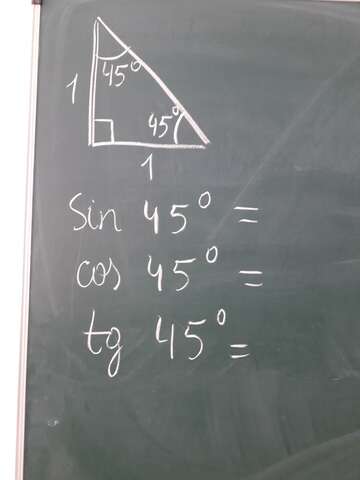 45°
1
45°
1
sin 45° =
cos 45° =
tg 45° =